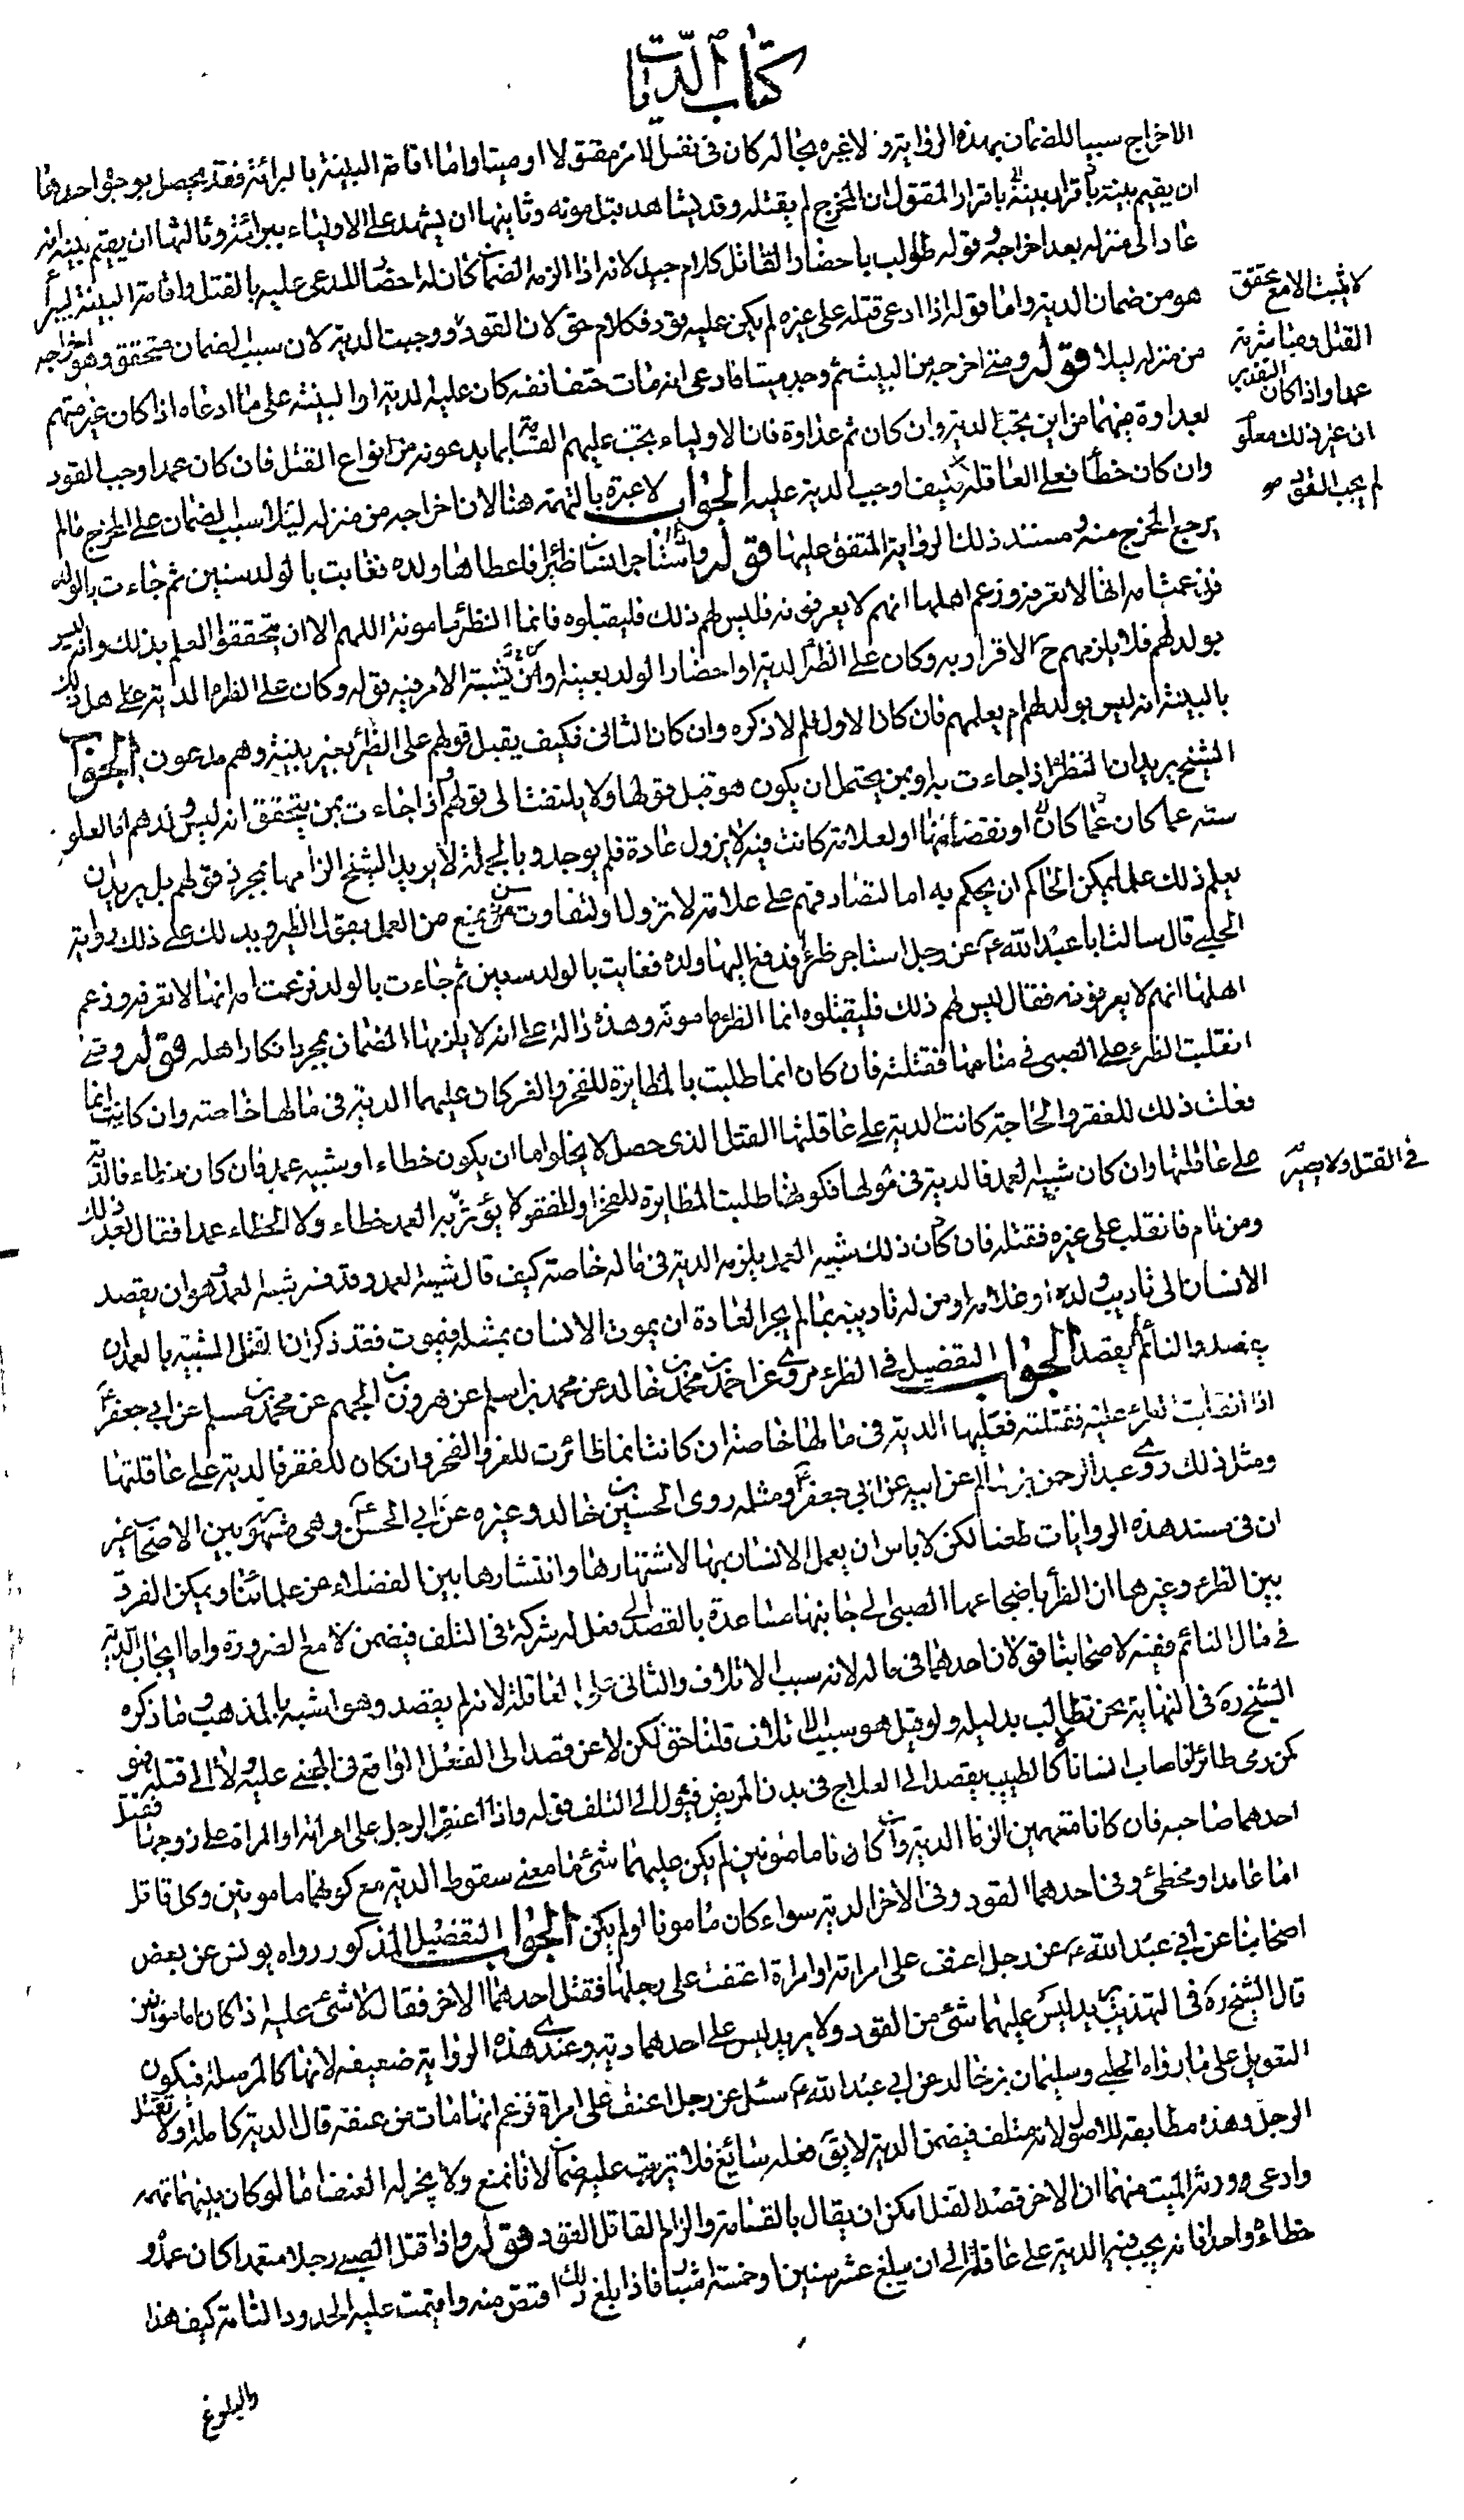 كتاب الديات
الاخراج سببا للضمان بهذه الرواية ولا غيره بحاله كان في نفس الامر مقتولا او ميتا واما اقامة البينة بالبرائة فقد يحصل بوجوه احدها
ان يقيم بينة باقرار بينة باقرار المقتول ان المخرج لم يقتله وقد يشاهد قبل موته وثانيها ان يشهد على الاولياء ببرائته وثالثها ان يقيم بينة انه
عاد الى منزله بعد اخراجه وقوله طولب باحضار القاتل كلام جيد لانه اذا الزمه الضمان كان له احضار المدعى عليه بالقتل واقامة البينة ليبرأ
هو من ضمان الدية واما قوله اذا ادعى قتله على غيره لم يكن عليه قود فكلام حق لان القود
لا يثبت الا مع تحقق
القتل ومباشرته
عمدا واذا كان التقدير
ان غير ذلك معلوم
لم يجب القود
ووجبت الدية لان سبب الضمان متحقق وهو اخراجه
من منزله ليلا قوله ومتى اخرجه من البيت ثم وجد ميتا فادعى انه مات حتف انفه كان عليه الدية او البينة على ما ادعاه اذا كان غير متهم
بعداوة بينهما من اين يجب الدية وان كان ثم عداوة فان الاولياء يجب عليهم القسامة بما يدعونه من انواع القتل فان كان عمدا وجب القود
وان كان خطأ فعلى العاقلة فكيف اوجب الدية عليه الجواب لا عبرة بالتهمة هنا لان اخراجه من منزله ليلا سبب لضمان على المخرج ما لم
يرجع المخرج منه ومستند ذلك الرواية المتفق عليها قوله واذا استاجر انسان ظئرا فاعطاها ولده فغابت بالولد سنين ثم جاءت بالولد
فزعمت امه انها لا تعرفه وزعم اهلها انهم لا يعرفونه فليس لهم ذلك فليقبلوه فانما الظئر مامونة اللهم الا ان يتحققوا العلم بذلك وانه ليس
بولد لهم فلا يلزمهم ح الاقرار به وكان على الظئر الدية او احضار الولد بعينه او من يشتبه الامر فيه قوله وكان على الظئر الدية على هل ذلك
بالبينة انه ليس بولد لهم ام بعلمهم فان كان الاول فلم لا ذكره وان كان الثاني فكيف يقبل قولهم على الظئر بغير بينة وهم مدعون الجواب
الشيخ يريد ان الظئر اذا جاءت به او بمن يحتمل ان يكون هو قبل قولها ولا يلتفت الى قولهم واذا جاءت بمن يتحقق انه ليس ولدهم اما لعلو
سنه عما كان او نقصانها او لعلامة كانت فيه لا يزول عادة فلم يوجد وبالجملة لا يريد الشيخ الزامها بمجرد قولهم بل يريد ان
يعلم ذلك علما يمكن الحاكم ان يحكم به اما لتصادقهم على علامة لا تزول او لتفاوت سن يمنع من العمل بقول الظئر ويدلك على ذلك رواية
الحلبي قال سالت ابا عبد الله ع عن رجل استاجر ظئرا فدفع اليها ولده فغابت بالولد سنين ثم جاءت بالولد فزعمت امه انها لا تعرفه وزعم
اهلها انهم لا يعرفونه فقال ليس لهم ذلك فليقبلوه انما الظئر مامونة وهذه دالة على انه لا يلزمها الضمان بمجرد انكار اهله قوله ومتى
انقلبت الظئر على الصبي في منامها فقتلته فان كان انما طلبت بالمظايرة للفخر والعز كان عليها الدية في مالها خاصة وان كانت انما
فعلت ذلك للفقر والحاجة كانت الدية على عاقلتها القتل الذي حصل لا يخلو اما ان يكون خطاء او شبيه عمد فان كان خطاء فالدية
على عاقلتها وان كان شبيه العمد فالدية في مالها فكونها طلبت المظايرة للفخر او للفقر لا يؤثر
في القتل ولا يصير
به العمد خطاء ولا الخطاء عمدا فقال بعد ذلك
ومن نام فانقلب على غيره فقتله فان كان ذلك شبيه العمد يلزمه الدية في ماله خاصة كيف قال شبيه العمد وقد فسر شبه العمد وهو ان يقصد
الانسان الى تاديب ولده او غلامه او من له تاديبه بما لم يجر العادة ان يموت الانسان بمثله فيموت فقد ذكر ان القتل المشتبه بالعمد ان
يقصد والنائم لم يقصد الجواب التفصيل في الظئر مروي عن احمد بن محمد بن خالد عن محمد بن اسلم عن هرون بن الجهم عن محمد بن مسلم عن ابي جعفر ع
اذا انقلبت الظئر عليه فقتلته فعليها الدية في مالها خاصة ان كانت انما ظائرت للعز والفخر وان كان للفقر فالدية على عاقلتها
ومثل ذلك روى عبد الرحمن بن سالم عن ابيه عن ابي جعفر ع ومثله روى الحسين بن خالد وغيره عن ابي الحسن ع وهي مشهورة بين الاصحاب غير
ان في سند هذه الروايات طعنا لكن لا باس ان يعمل الانسان بها لاشتهارها وانتشارها بين الفضلاء من علمائنا ويمكن الفرق
بين الظئر وغيرها ان الظئر باضجاعها الصبي الى جانبها مساعدة بالقصد الى فعل له شركة في التلف فيضمن لا مع الضرورة واما ايجاب الدية
في مال النائم ففيه لاصحابنا قولان احدهما في ماله لانه سبب الاتلاف والثاني على العاقلة لانه لم يقصد وهو اشبه بالمذهب وما ذكره
الشيخ ره في النهاية نحن نطالب بدليله ولو قيل هو سبب الاتلاف قلنا حق لكن لا عن قصد الى الفعل الواقع في المجني عليه ولا الى قتله فهو
كمن رمى طائرا فاصاب انسانا لا كالطبيب يقصد الى العلاج في بدن المريض فيؤول الى التلف قوله واذا اعنف الرجل على امراته او المراة على زوجها فقتل
احدهما صاحبه فان كانا متهمين الزما الدية وان كانا مامونين لم يكن عليهما شئ ما معنى سقوط الدية مع كونهما مامونين وكل قاتل
اما عامد او مخطئ وفي احدهما القود وفي الاخر الدية سواء كان مامونا او لم يكن الجواب التفصيل المذكور رواه يونس عن بعض
اصحابنا عن ابي عبد الله ع عن رجل اعنف على امراته او امراة اعنفت على رجلها فقتل احدهما الاخر فقال لا شئ عليه اذا كان مامونين
قال الشيخ ره في التهذيب يريد ليس عليهما شئ من القود ولا يريد ليس على احدهما دية وعندي هذه الرواية ضعيفة لانها كالمرسلة فيكون
التعويل على ما رواه الحلبي وسليمان بن خالد عن ابي عبد الله ع سئل عن رجل اعنف على امراة فزعم انها ماتت من عنفه قال الدية كاملة ولا يقتل
الرجل وهذه مطابقة للاصول لانه متلف فيضمن الدية لا يق فعله سائغ فلا يترتب عليه ضمان لانا نمنع ولا يجز له العنف اما لو كان بينهما تهمة
وادعى وورثة الميت منهما ان الاخر قصد القتل امكن ان يقال بالقسامة والزام القاتل القود قوله واذا قتل الصبي رجلا متعمدا كان عمده
خطاء واحدا فانه يجب فيه الدية على عاقلته الى ان يبلغ عشر سنين او خمسة اشبار فاذا بلغ ذلك اقتص منه واقيمت عليه الحدود التامة كيف هذا
والبلوغ